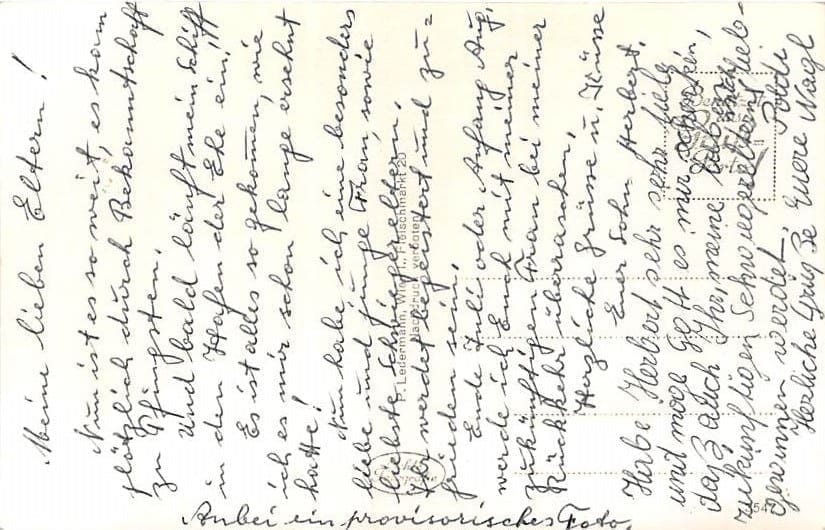 Meine lieben Eltern!
Nun ist es so weit, es kam
plötzlich durch Bekanntschaft
zu Pfingsten.
Und bald läuft mein Schiff
in den Hafen der Ehe ein!
Es ist alles so gekomen, wie
ich es mir schon lange ersehnt
hatte!
Nun habe ich eine besonders
liebe und junge Frau, sowie
liebste Schwiegereltern.
Ihr werdet begeistert und zu=
frieden sein.
Ende Juli oder Anfang Aug.
werde ich Euch mit meiner
zukünftigen Frau bei meiner
Rückkehr überraschen.
Herzliche Grüsse u. Küsse
Euer Sohn Herbert.
Habe Herbert sehr sehr lieb
und möge Gott es mir schenken,
daß auch Ihr, meine
zukünftigen Schwiegereltern, lieb-
gewinnen werdet. Poldi
Herzliche Grüße Eure Nagl
Anbei ein provisorisches Foto.
P. Ledermann, Wien I., Fleischmarkt 20
Nachdruck verboten